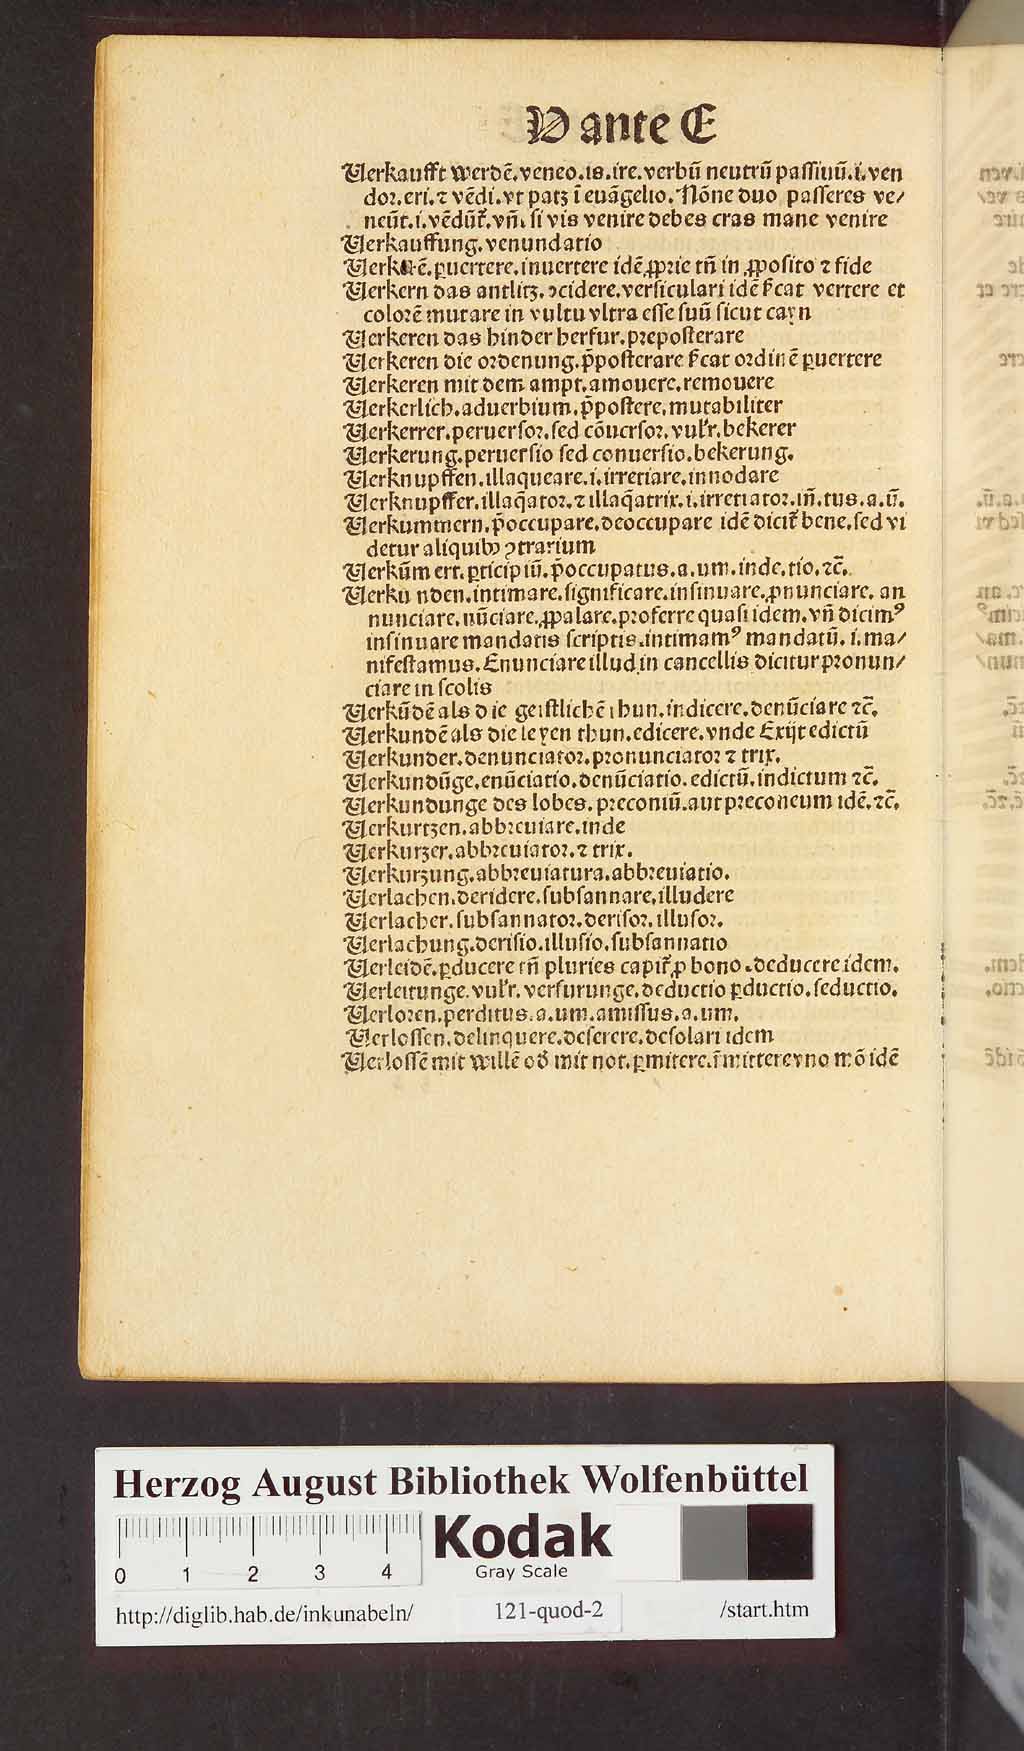 V ante E
Verkaufft werdē. veneo. is. ire. verbū neutrū passiuū. i. ven
dor. eri. ⁊ vēdi. vt patꝫ ī euāgelio. Nōne duo passeres ve/
neūt. i. vēdūt᷑. vñ. si vis venire debes cras mane venire
Verkauffung. venundatio
Verkerē. ꝑuertere. inuertere idē ꝓprie tñ in ꝓposito ⁊ fide
Verkern das antlitz. ꝯcidere. versiculari idē s̄cat vertere et
colorē mutare in vultu vltra esse suū sicut cayn
Verkeren das hinder herfur. preposterare
Verkeren die ordenung. p̄posterare s̄cat ordinē ꝑuertere
Verkeren mit dem ampt. amouere. remouere
Verkerlich. aduerbium. p̄postere. mutabiliter
Verkerrer. peruersor. sed cōuersor. vulr̄. bekerer
Verkerung. peruersio sed conuersio. bekerung.
Verknupffen. illaqueare. i. irretiare. innodare
Verknupffer. illaq̄ator. ⁊ illaq̄atrix. i. irretiator. iñ. tus. a. ū.
Verkummern. p̄occupare. deoccupare idē dicit᷑ bene. sed vi
detur aliquibꝰ ꝯtrarium
Verkūmert. ꝑticipiū. p̄occupatus. a. um. inde. tio. ⁊c̄.
Verkunden. intimare. significare. insinuare. ꝓnunciare. an
nunciare. nūciare. ꝓpalare. proferre quasi idem. vñ dicimꝰ
insinuare mandatis scriptis. intimamꝰ mandatū. i. ma/
nifestamus. Enunciare illud in cancellis dicitur pronun/
ciare in scolis
Verkūdē als die geistlichē thun. indicere. denūciare ⁊c̄.
Verkundē als die leyen thun. edicere. vnde Exijt edictū
Verkunder. denunciator. pronunciator ⁊ trix.
Verkundūge. enūciatio. denūciatio. edictū. indictum ⁊c̄.
Verkundunge des lobes. preconiū. aut preconeum idē. ⁊c̄.
Verkurtzen. abbreuiare. inde
Verkurzer. abbreuiator. ⁊ trix.
Verkurzung. abbreuiatura. abbreuiatio.
Verlachen. deridere. subsannare. illudere
Verlacher. subsannator. derisor. illusor.
Verlachung. derisio. illusio. subsannatio
Verleidē. ꝑducere tñ pluries capit᷑ ꝓ bono. deducere idem.
Verleitunge. vulr̄. versurunge. deductio ꝑductio. seductio.
Verloren. perditus. a. um. amissus. a. um.
Verlossen. delinquere. deserere. desolari idem
Verlossē mit willē oď mit not. ꝑmitere. īmittere vno mō idē
Herzog August Bibliothek Wolfenbüttel
Kodak
Gray Scale
0 1 2 3 4
http://diglib.hab.de/inkunabeln/ 121-quod-2 /start.htm